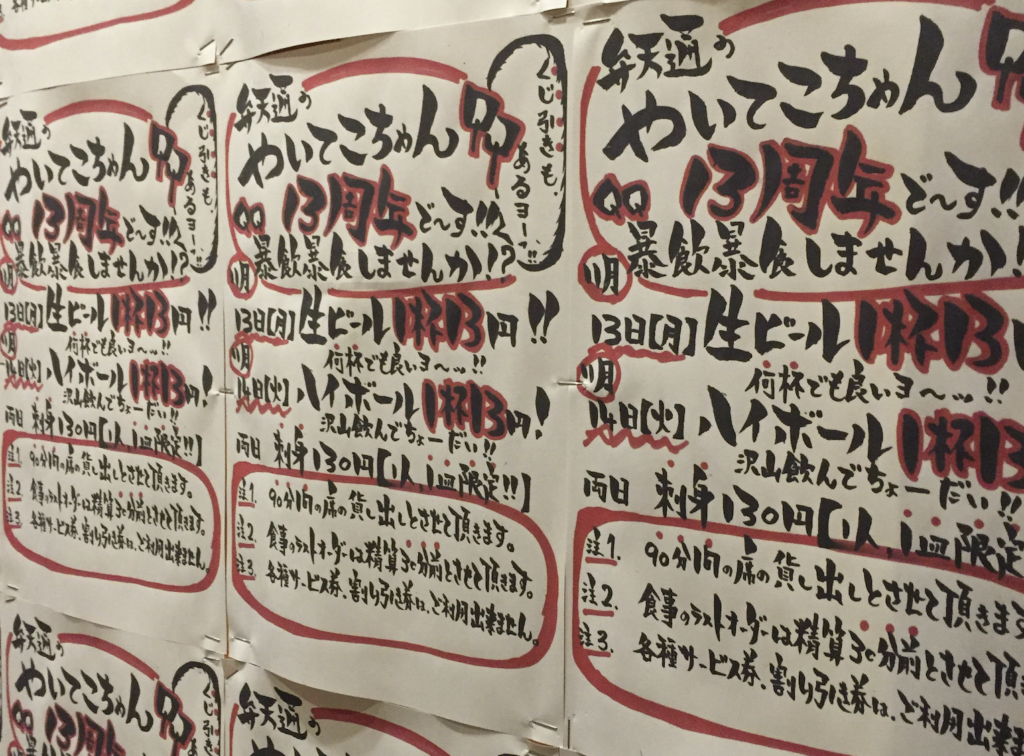 弁天通の
やいてこちゃん
くじ引きも、
あるヨー!!
13周年で〜す!!
暴飲暴食しませんか!?
11月
13日[月] 生ビール1杯13円!!
何杯でも良いヨ〜ッ!!
11月
14日[火] ハイボール1杯13円!
沢山飲んでちょーだい!!
両日 刺身130円[1人、1皿限定!!]
注1. 90分間の席の貸し出しとさせて頂きます。
注2. 食事のラストオーダーは精算30分前とさせて頂きます。
注3. 各種サービス券、割り引き券は、ご利用出来ません。
弁天通の
やいてこちゃん
くじ引きも、
あるヨー!!
13周年で〜す!!
暴飲暴食しませんか!?
11月
13日[月] 生ビール1杯13円!!
何杯でも良いヨ〜ッ!!
11月
14日[火] ハイボール1杯13円!
沢山飲んでちょーだい!!
両日 刺身130円[1人、1皿限定!!]
注1. 90分間の席の貸し出しとさせて頂きます。
注2. 食事のラストオーダーは精算30分前とさせて頂きます。
注3. 各種サービス券、割り引き券は、ご利用出来ません。
弁天通の
やいてこちゃん
13周年で〜す!!
暴飲暴食しませんか!
11月
13日[月] 生ビール1杯13
何杯でも良いヨ〜ッ!!
11月
14日[火] ハイボール1杯13
沢山飲んでちょーだい!!
両日 刺身130円[1人、1皿限定
注1. 90分間の席の貸し出しとさせて頂きます
注2. 食事のラストオーダーは精算30分前とさせて頂
注3. 各種サービス券、割り引き券は、ご利用出来
弁天通の
やいてこちゃん
くじ引きも
13周年
弁天通の